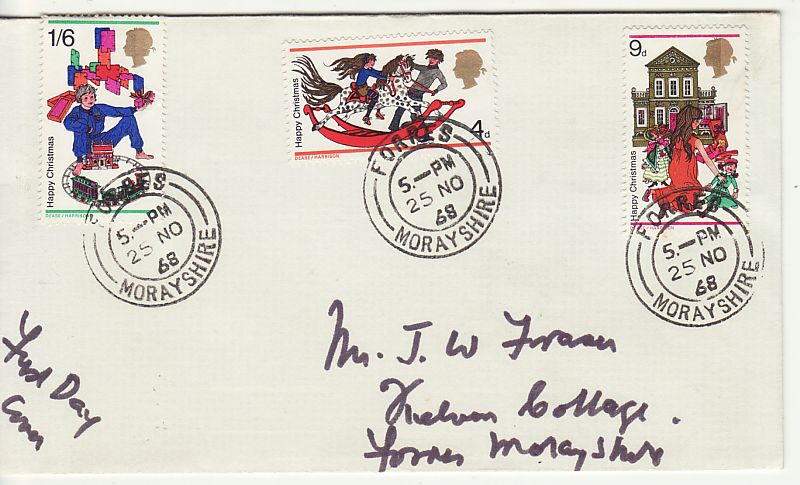 1/6
Happy Christmas
DEASE/HARRISON
FORRES
5.—PM
25 NO
68
MORAYSHIRE
Happy Christmas
4d
DEASE/HARRISON
FORRES
5.—PM
25 NO
68
MORAYSHIRE
9d
Happy Christmas
HARRISON
FORRES
5.—PM
25 NO
68
MORAYSHIRE
First Day
Cover
Mr. J. W Fraser
Kelvon Cottage.
Forres Morayshire